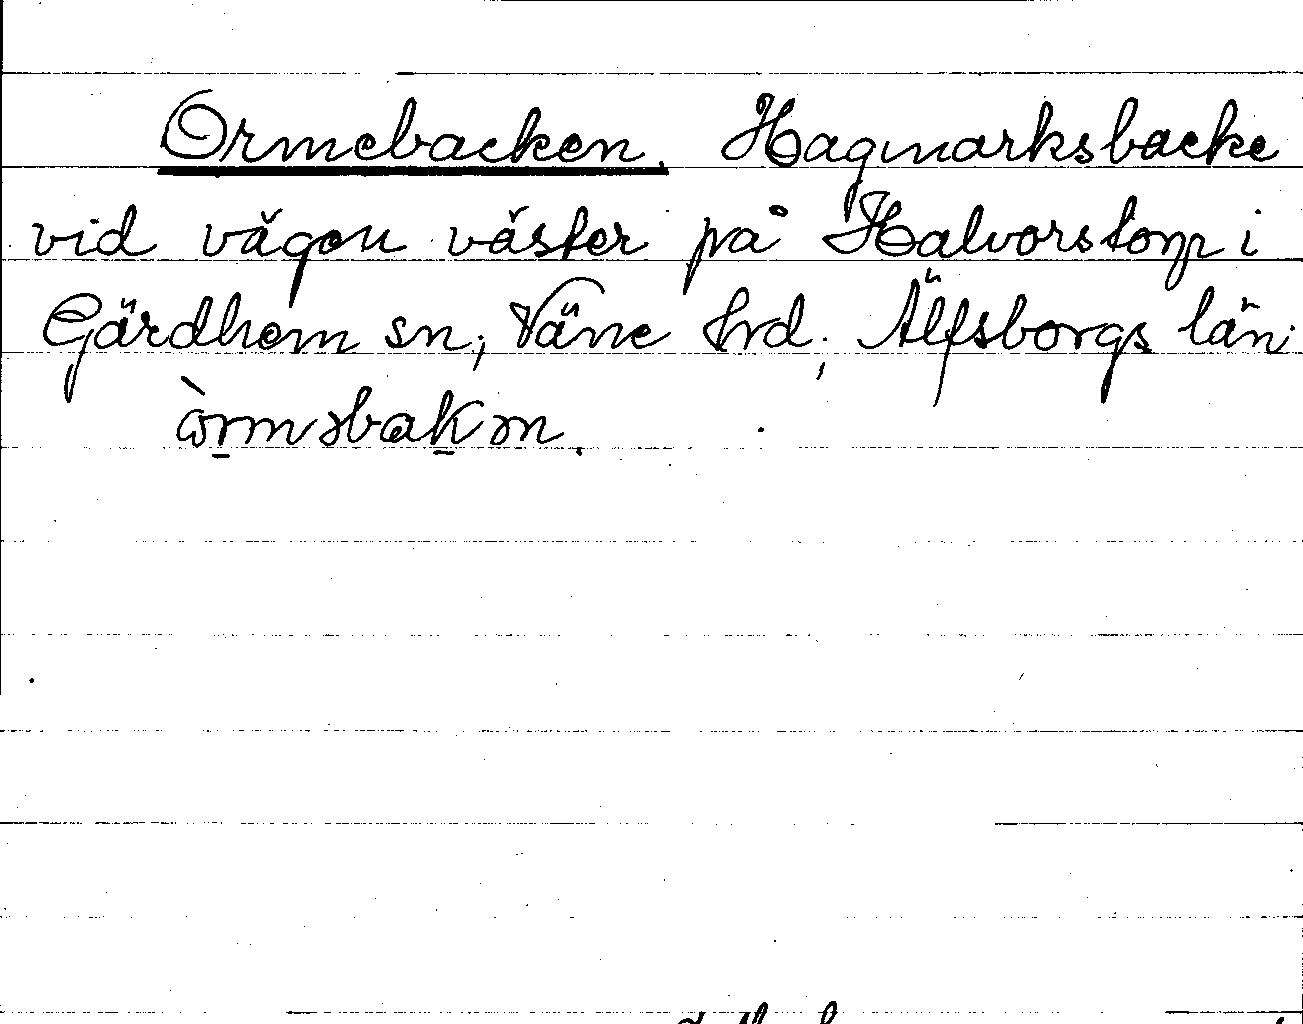 Ormebacken. Hagmarksbacke
vid vägen väster på Halvorstorp i
Gärdhem sn, Väne hrd, Älfsborgs län.
òrməbakən.